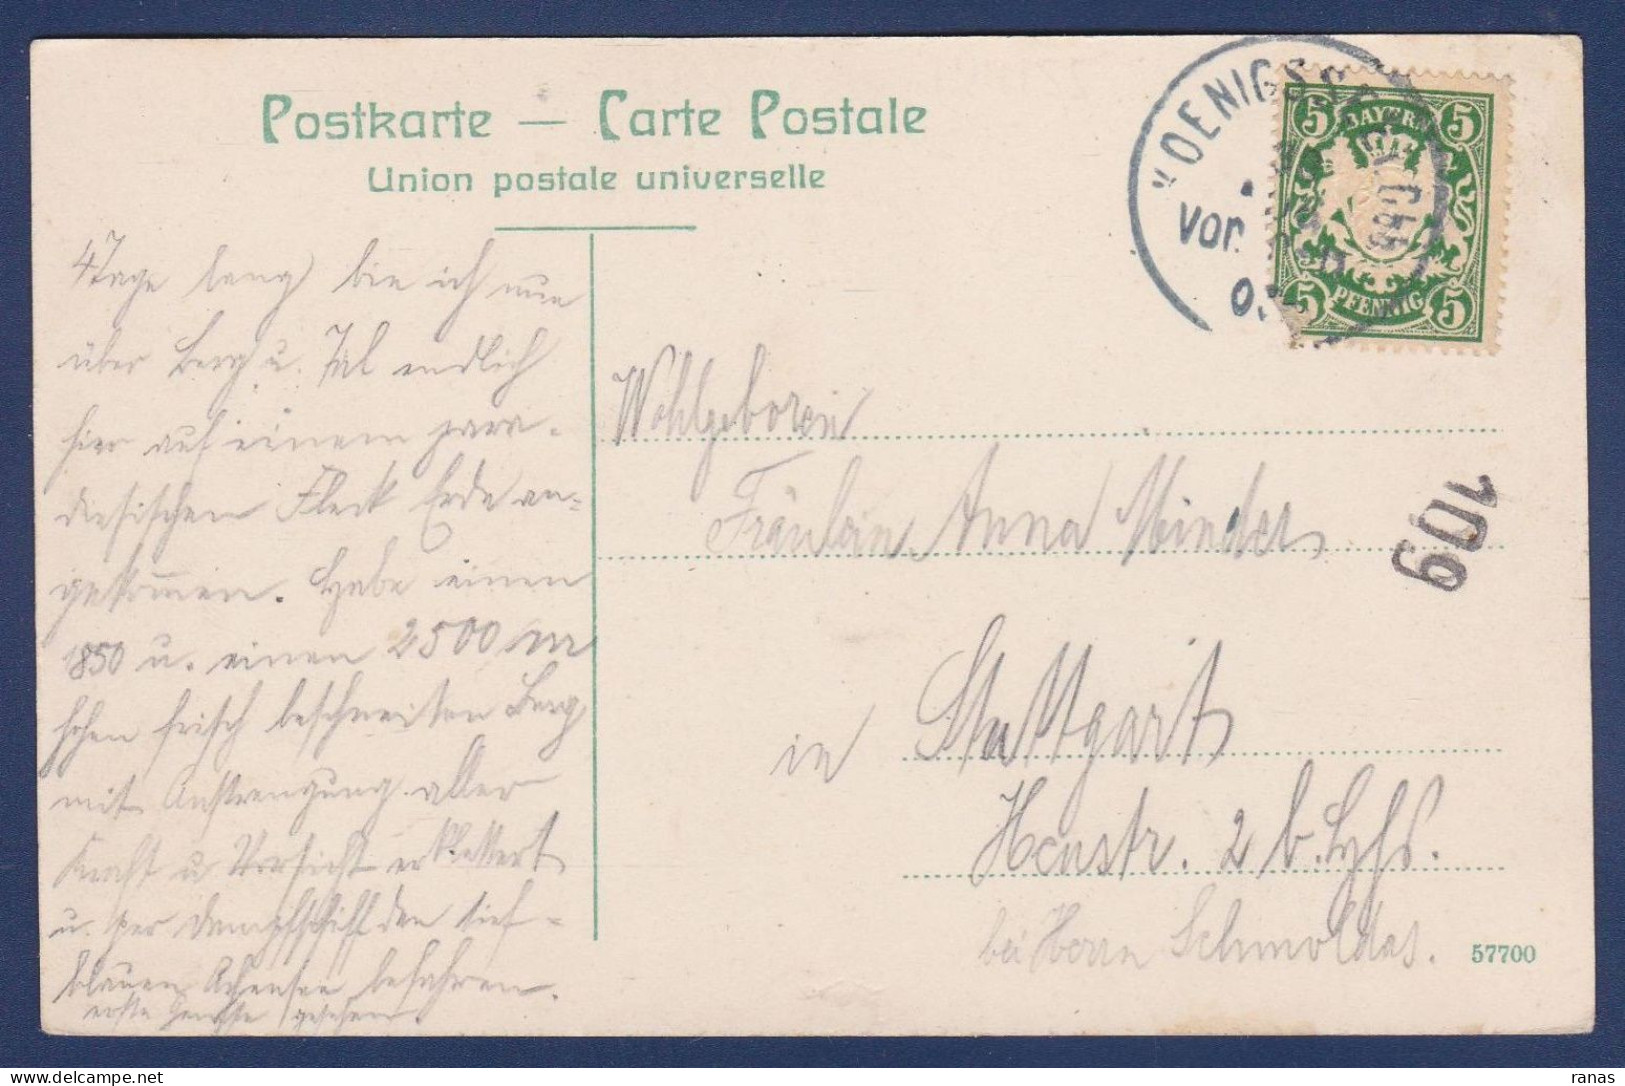 Postkarte — Carte Postale
Union postale universelle
4 Tage lang bin ich nun
über Berg u. Tal endlich
hier auf einem para-
diesischen Fleck Erde an-
gekommen. Habe einen
1850 u. einen 2500 m
hohen frisch beschneiten Berg
mit Anstrengung aller
Kraft u Vorsicht erklettert
u. per Dampfschiff den tief-
blauen Achensee befahren.
erste Gemse gesehen.
KOENIGS
Vor.
BAYERN
5 5
PFENNIG
5 5
Wohlgeboren
Fräulein Anna Minder
in Stuttgart
Heustr. 2 b.
bei Herrn Schmoldas.
109
57700
ranas